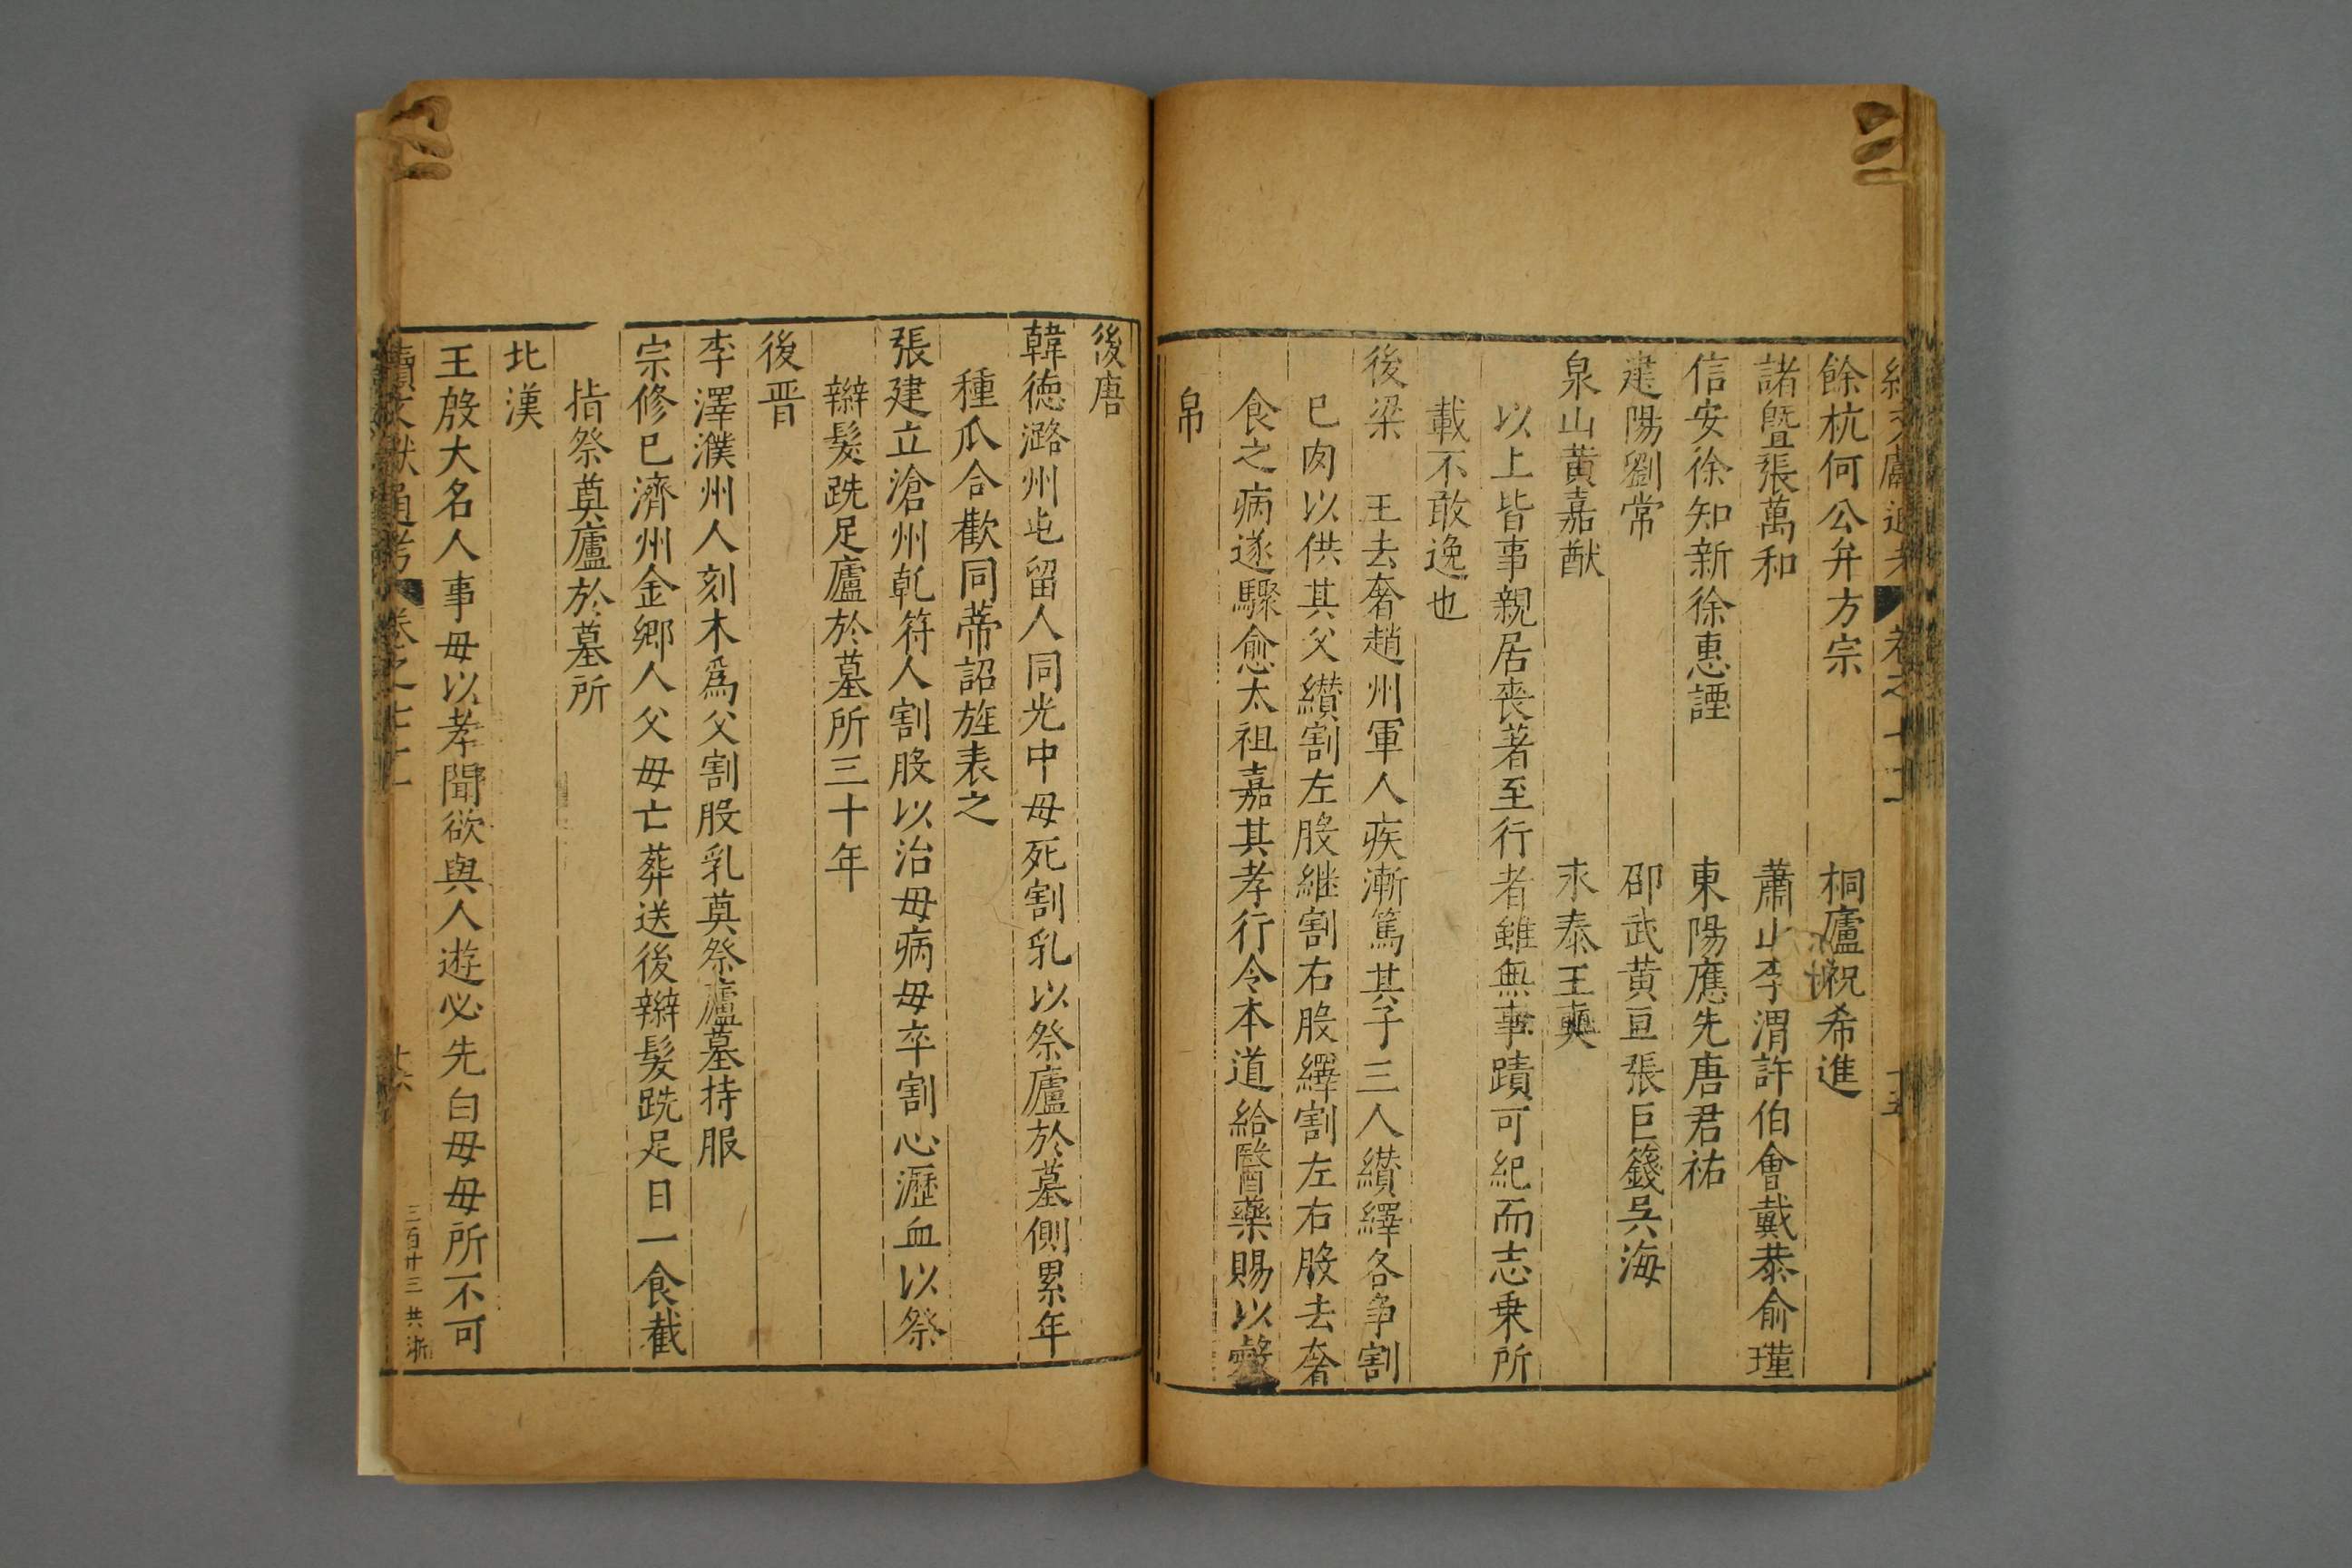 續文獻通考 卷之七十二 十五
餘杭何公弁方宗 桐廬祝希進
諸暨張萬和 蕭山李渭許伯會戴恭俞瑾
信安徐知新徐惠諲 東陽應先唐君祐
建陽劉常 邵武黃亘張巨籛吳海
泉山黃嘉猷 永泰王奭
以上皆事親居喪著至行者雖無事蹟可紀而志乗所
載不敢逸也
後梁 王去奢趙州軍人疾漸篤其子三人纉繹各爭割
巳肉以供其父纉割左股継割右股繹割左右股去奢
食之病遂驟愈太祖嘉其孝行令本道給醫藥賜以
帛
後唐
韓德潞州屯留人同光中毋死割乳以祭廬於墓側累年
種瓜合歡同蒂詔旌表之
張建立滄州乹符人割股以治毋病毋卒割心瀝血以祭
辮髮跣足廬於墓所三十年
後晋
李澤濮州人刻木爲父割股乳奠祭廬墓持服
宗修巳濟州金郷人父毋亡葬送後辮髮跣足日一食截
指祭奠廬於墓所
北漢
王殷大名人事毋以孝聞欲與人遊必先白毋毋所不可
續文獻通考 卷之七十二 十六 三百廿三 共 浙